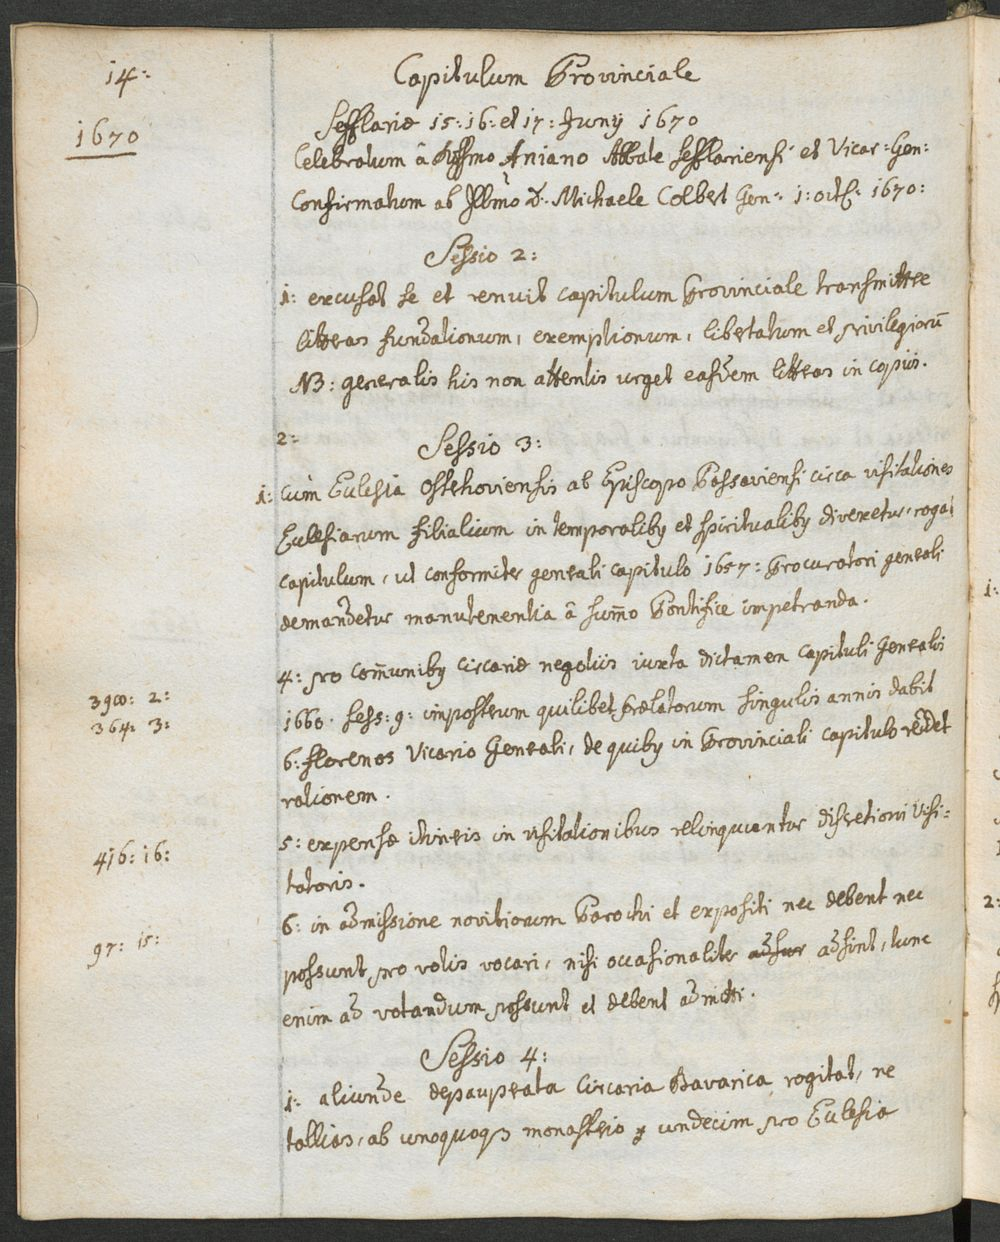 14:
Capitulum Provinciale
1670
Sefflariæ 15: 16: et 17: Junij 1670
Celebratum â Rssmo Aniano Abbate Sefflariensi et Vicar: Gen:
Confirmatum ab Illmo D. Michaele Colbert Gen: 1: octb: 1670:
Sessio 2:
1: excusat se et renuit capitulum Provinciale transmittere
litteras fundationum, exemptionum, libertatum et privilegiorū
NB: generalis his non attentis urget easdem litteras in copiis.
2:
Sessio 3:
1: Cum Eclesia Ostehoviensis ab Episcopo Passaviensi circa visitationes
Eclesiarum filialium in temporalibq et spiritualibq divexetur, rogat
capitulum, ut conformiter genrali capitulo 1657: Procuratori genrali
demandetur manutenentia â sum̄o Pontifice impetranda.
4: pro com̄unibq circariæ negotiis iuxta dictamen capituli Genralis
390: 2:
1660. sess: 9: imposterum quilibet Prælatorum singulis annis dabit
364: 3:
6: florenos Vicario Genrali, de quibq in Provinciali capitulo reddet
rationem.
5: expensæ itineris in visitationibus relinquuntur discretioni Visi:
416: 16:
tatoris.
6: in admissione novitiorum Parochi et expositi nec debent nec
97: 15:
possunt pro votis vocari, nisi occasionaliter adsint, tunc
enim ad votandum possunt et debent admitti.
Sessio 4:
1: aliunde depauperata Circaria Bavarica rogitat, ne
tallias, ab unoquoqz monasterio undecim pro Eclesia